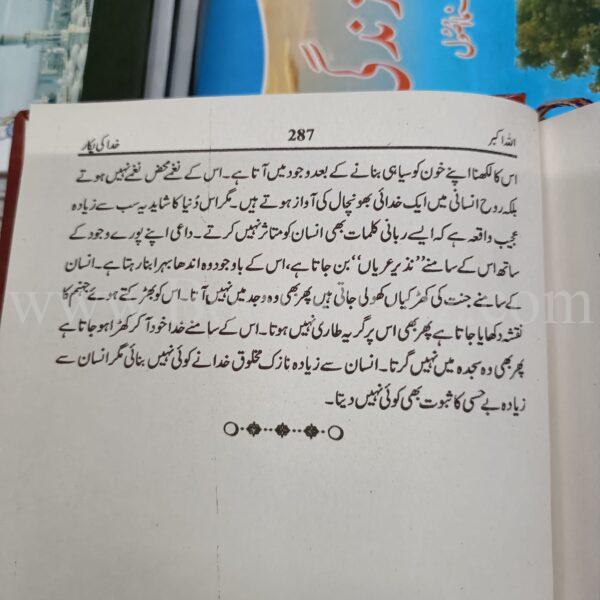 زندگی
اللہ اکبر
287
خدا کی پکار
اس کا لکھنا اپنے خون کو سیاہی بنانے کے بعد وجود میں آتا ہے۔ اس کے نغمے محض نغمے نہیں ہوتے
بلکہ روح انسانی میں ایک خدائی بھونچال کی آواز ہوتے ہیں۔ مگر اس دُنیا کا شاید یہ سب سے زیادہ
عجیب واقعہ ہے کہ ایسے ربانی کلمات بھی انسان کو متاثر نہیں کرتے۔ داعی اپنے پورے وجود کے
ساتھ اس کے سامنے ’’نذیر عریاں‘‘ بن جاتا ہے، اس کے باوجود وہ اندھا بہرا بنا رہتا ہے۔ انسان
کے سامنے جنت کی کھڑکیاں کھولی جاتی ہیں پھر بھی وہ وجد میں نہیں آتا۔ اس کو بھڑکتے ہوئے جہنم کا
نقشہ دکھایا جاتا ہے پھر بھی اس پر گریہ طاری نہیں ہوتا۔ اس کے سامنے خدا خود آ کر کھڑا ہو جاتا ہے
پھر بھی وہ سجدہ میں نہیں گرتا۔ انسان سے زیادہ نازک مخلوق خدا نے کوئی نہیں بنائی مگر انسان سے
زیادہ بے حسی کا ثبوت بھی کوئی نہیں دیتا۔